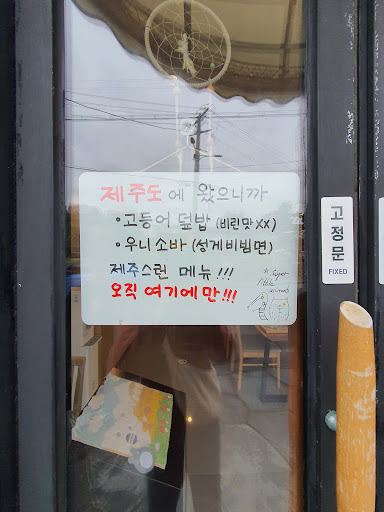 제주도에 왔으니까
• 고등어 덮밥 (비린맛 XX)
• 우니 소바 (성게비빔면)
제주스런 메뉴!!!
오직 여기에만!!!
고정문
FIXED